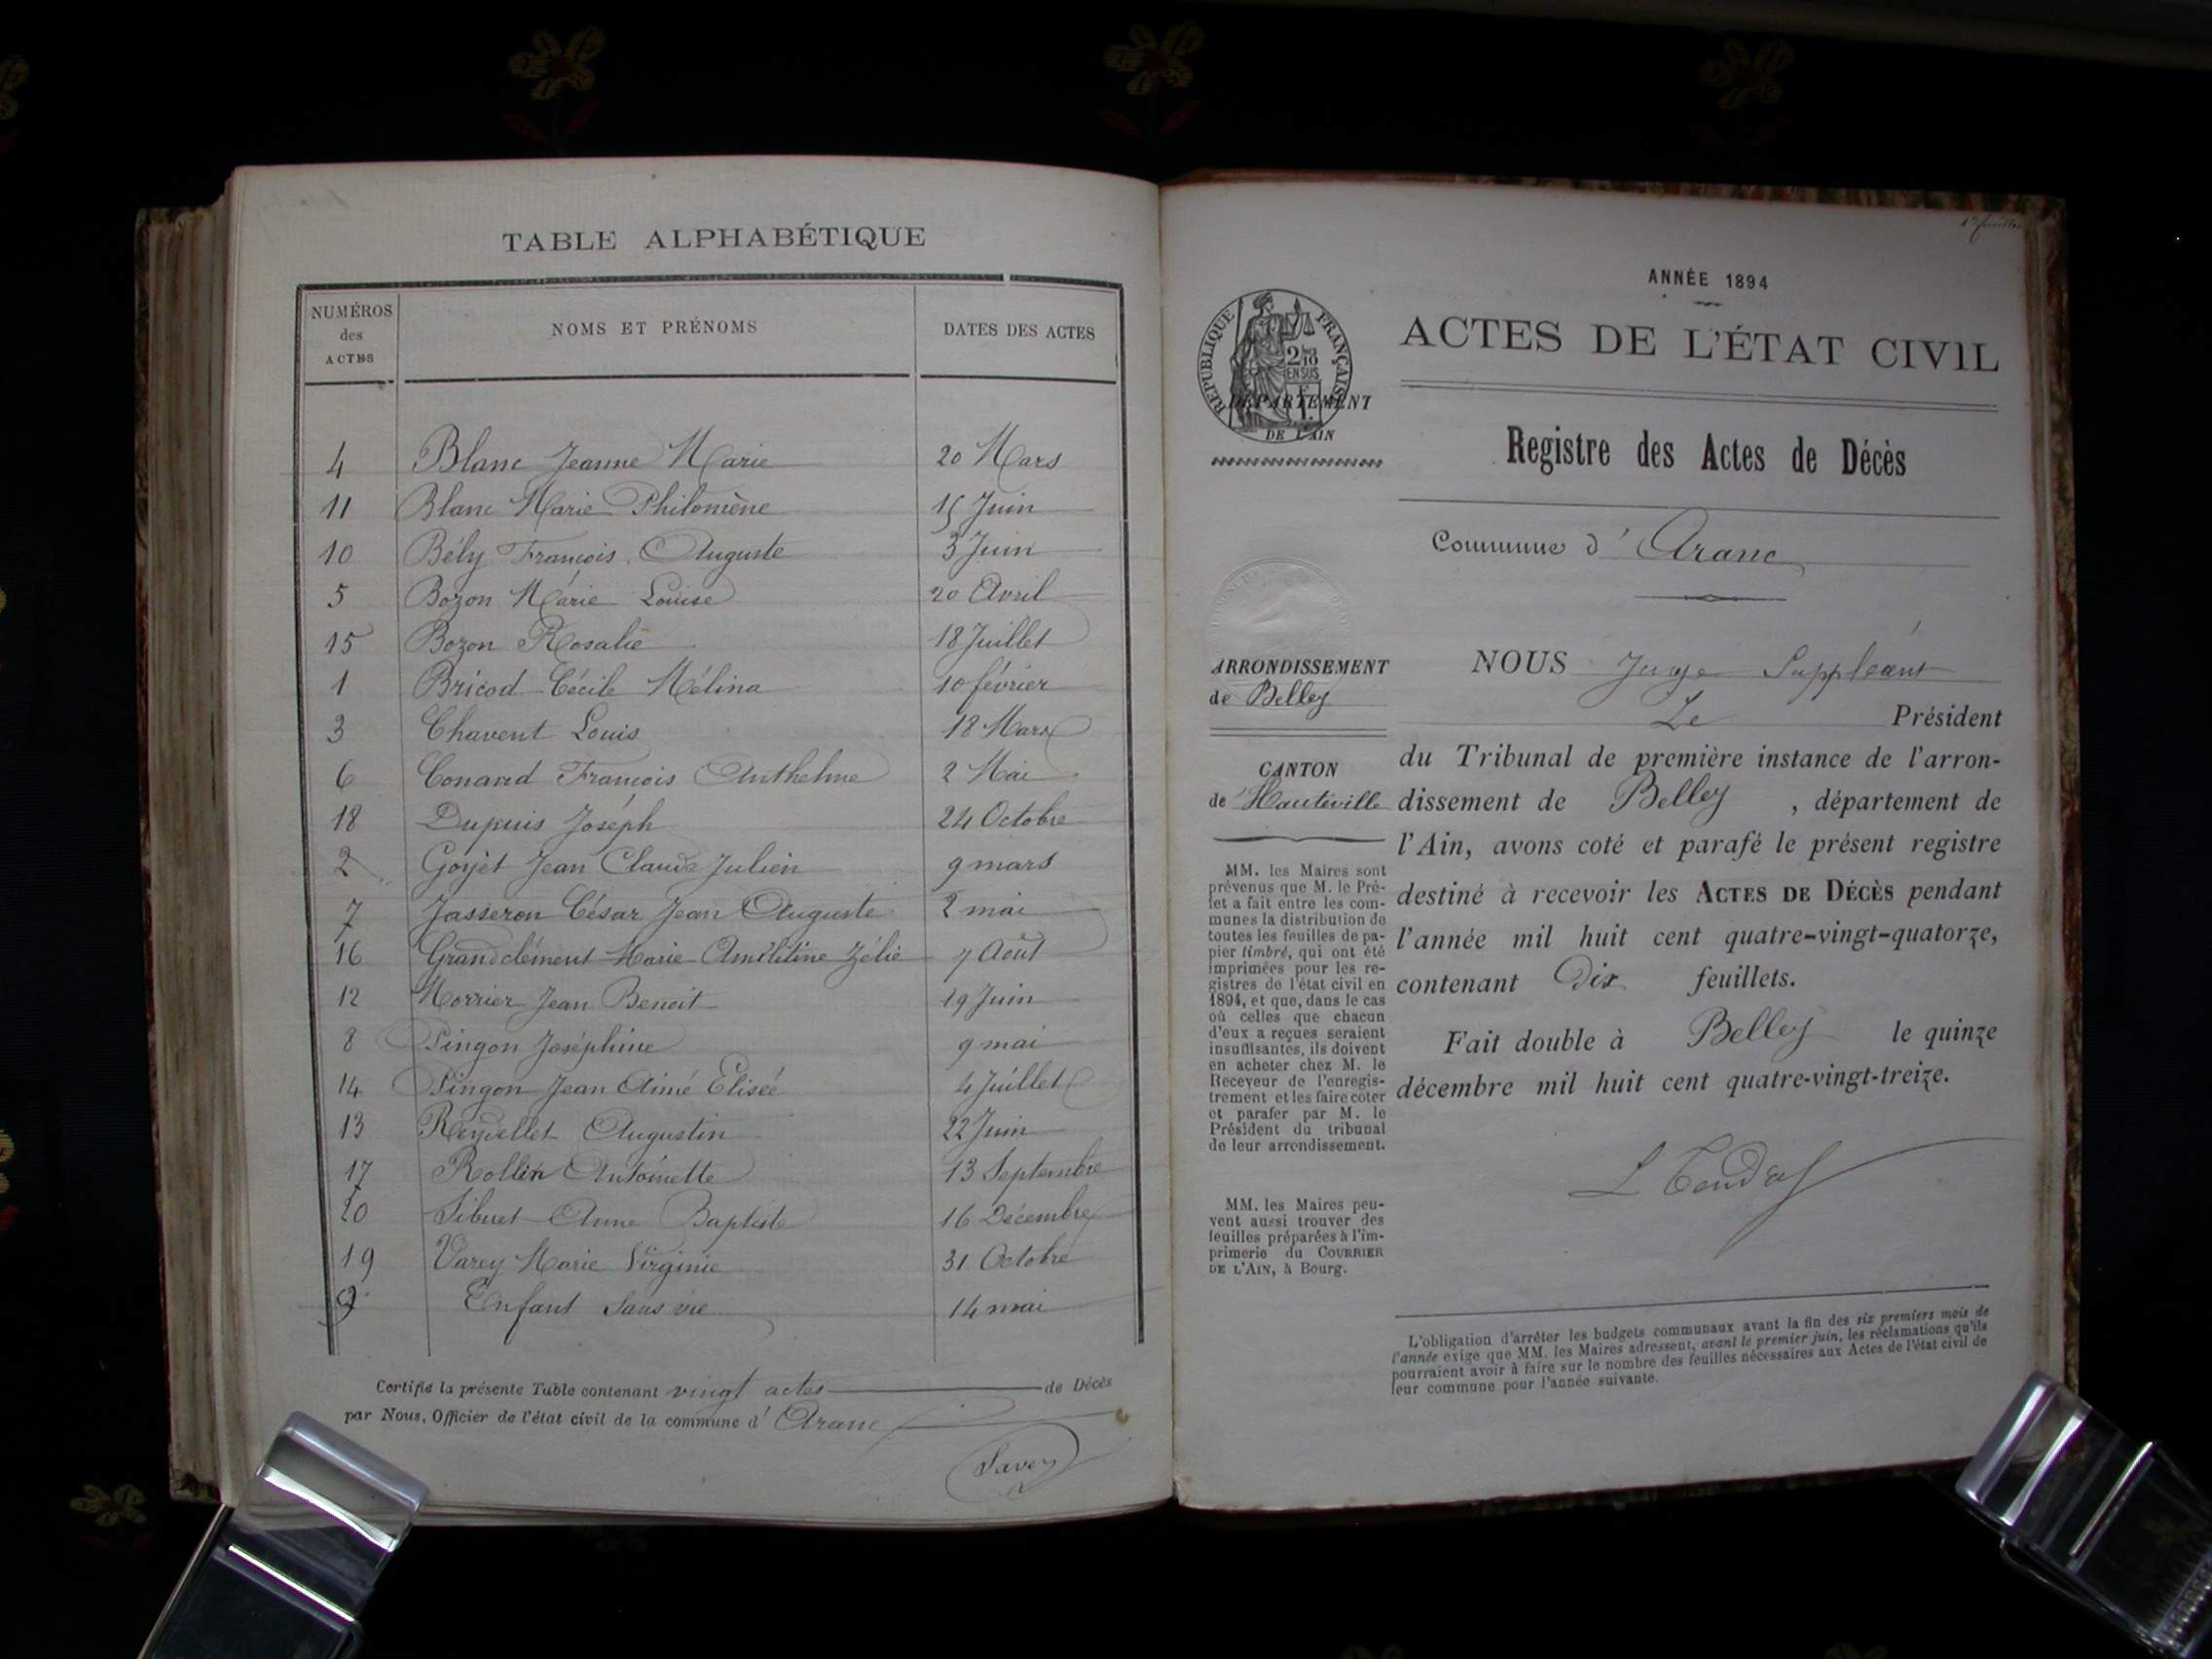 TABLE ALPHABÉTIQUE
NUMÉROS des ACTES NOMS ET PRÉNOMS DATES DES ACTES
4 Blanc Jeanne Marie 20 Mars
11 Blanc Marie Philomène 15 Juin
10 Bély François Auguste 3 Juin
5 Bozon Marie Louise 20 Avril
15 Bozon Rosalie 18 Juillet
1 Bricod Cécile Mélina 10 février
3 Chavent Louis 18 Mars
6 Conand François Anthelme 2 Mai
18 Dupuis Joseph 24 Octobre
2 Goyet Jean Claude Julien 9 mars
7 Jasseron César Jean Auguste 2 mai
16 Grandclément Marie Zélie 7 Août
12 Morrier Jean Benoit 19 Juin
8 Pingon Joséphine 9 mai
14 Pingon Jean Aimé Elisée 4 Juillet
13 Reydellet Augustin 22 Juin
17 Rollin Antoinette 13 Septembre
20 Sibuet Anne Baptiste 16 Décembre
19 Varey Marie Virginie 31 Octobre
9 Enfant sans vie 14 mai
Certifié la présente Table contenant vingt actes de Décès
par Nous, Officier de l'état civil de la commune d' Aranc
Savey
1er feuillet
ANNÉE 1894
ACTES DE L'ÉTAT CIVIL
RÉPUBLIQUE FRANÇAISE
2/10 EN SUS
DÉPARTEMENT
DE L'AIN
Registre des Actes de Décès
Commune d' Aranc
ARRONDISSEMENT
de Belley
CANTON
de Hauteville
MM. les Maires sont
prévenus que M. le Pré-
fet a fait entre les com-
munes la distribution de
toutes les feuilles de pa-
pier timbré, qui ont été
imprimées pour les re-
gistres de l'état civil en
1894, et que, dans le cas
où celles que chacun
d'eux a reçues seraient
insuffisantes, ils doivent
en acheter chez M. le
Receveur de l'enregis-
trement et les faire coter
et parafer par M. le
Président du tribunal
de leur arrondissement.
MM. les Maires peu-
vent aussi trouver des
feuilles préparées à l'im-
primerie du COURRIER
DE L'AIN, à Bourg.
NOUS Juge Suppléant
Le Président
du Tribunal de première instance de l'arron-
dissement de Belley , département de
l'Ain, avons coté et parafé le présent registre
destiné à recevoir les ACTES DE DÉCÈS pendant
l'année mil huit cent quatre-vingt-quatorze,
contenant Dix feuillets.
Fait double à Belley le quinze
décembre mil huit cent quatre-vingt-treize.
L'obligation d'arrêter les budgets communaux avant la fin des six premiers mois de
l'année exige que MM. les Maires adressent, avant le premier juin, les réclamations qu'ils
pourraient avoir à faire sur le nombre des feuilles nécessaires aux Actes de l'état civil de
leur commune pour l'année suivante.